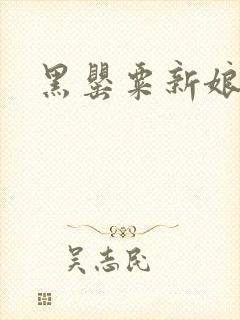 黑罂粟新娘
吴志民